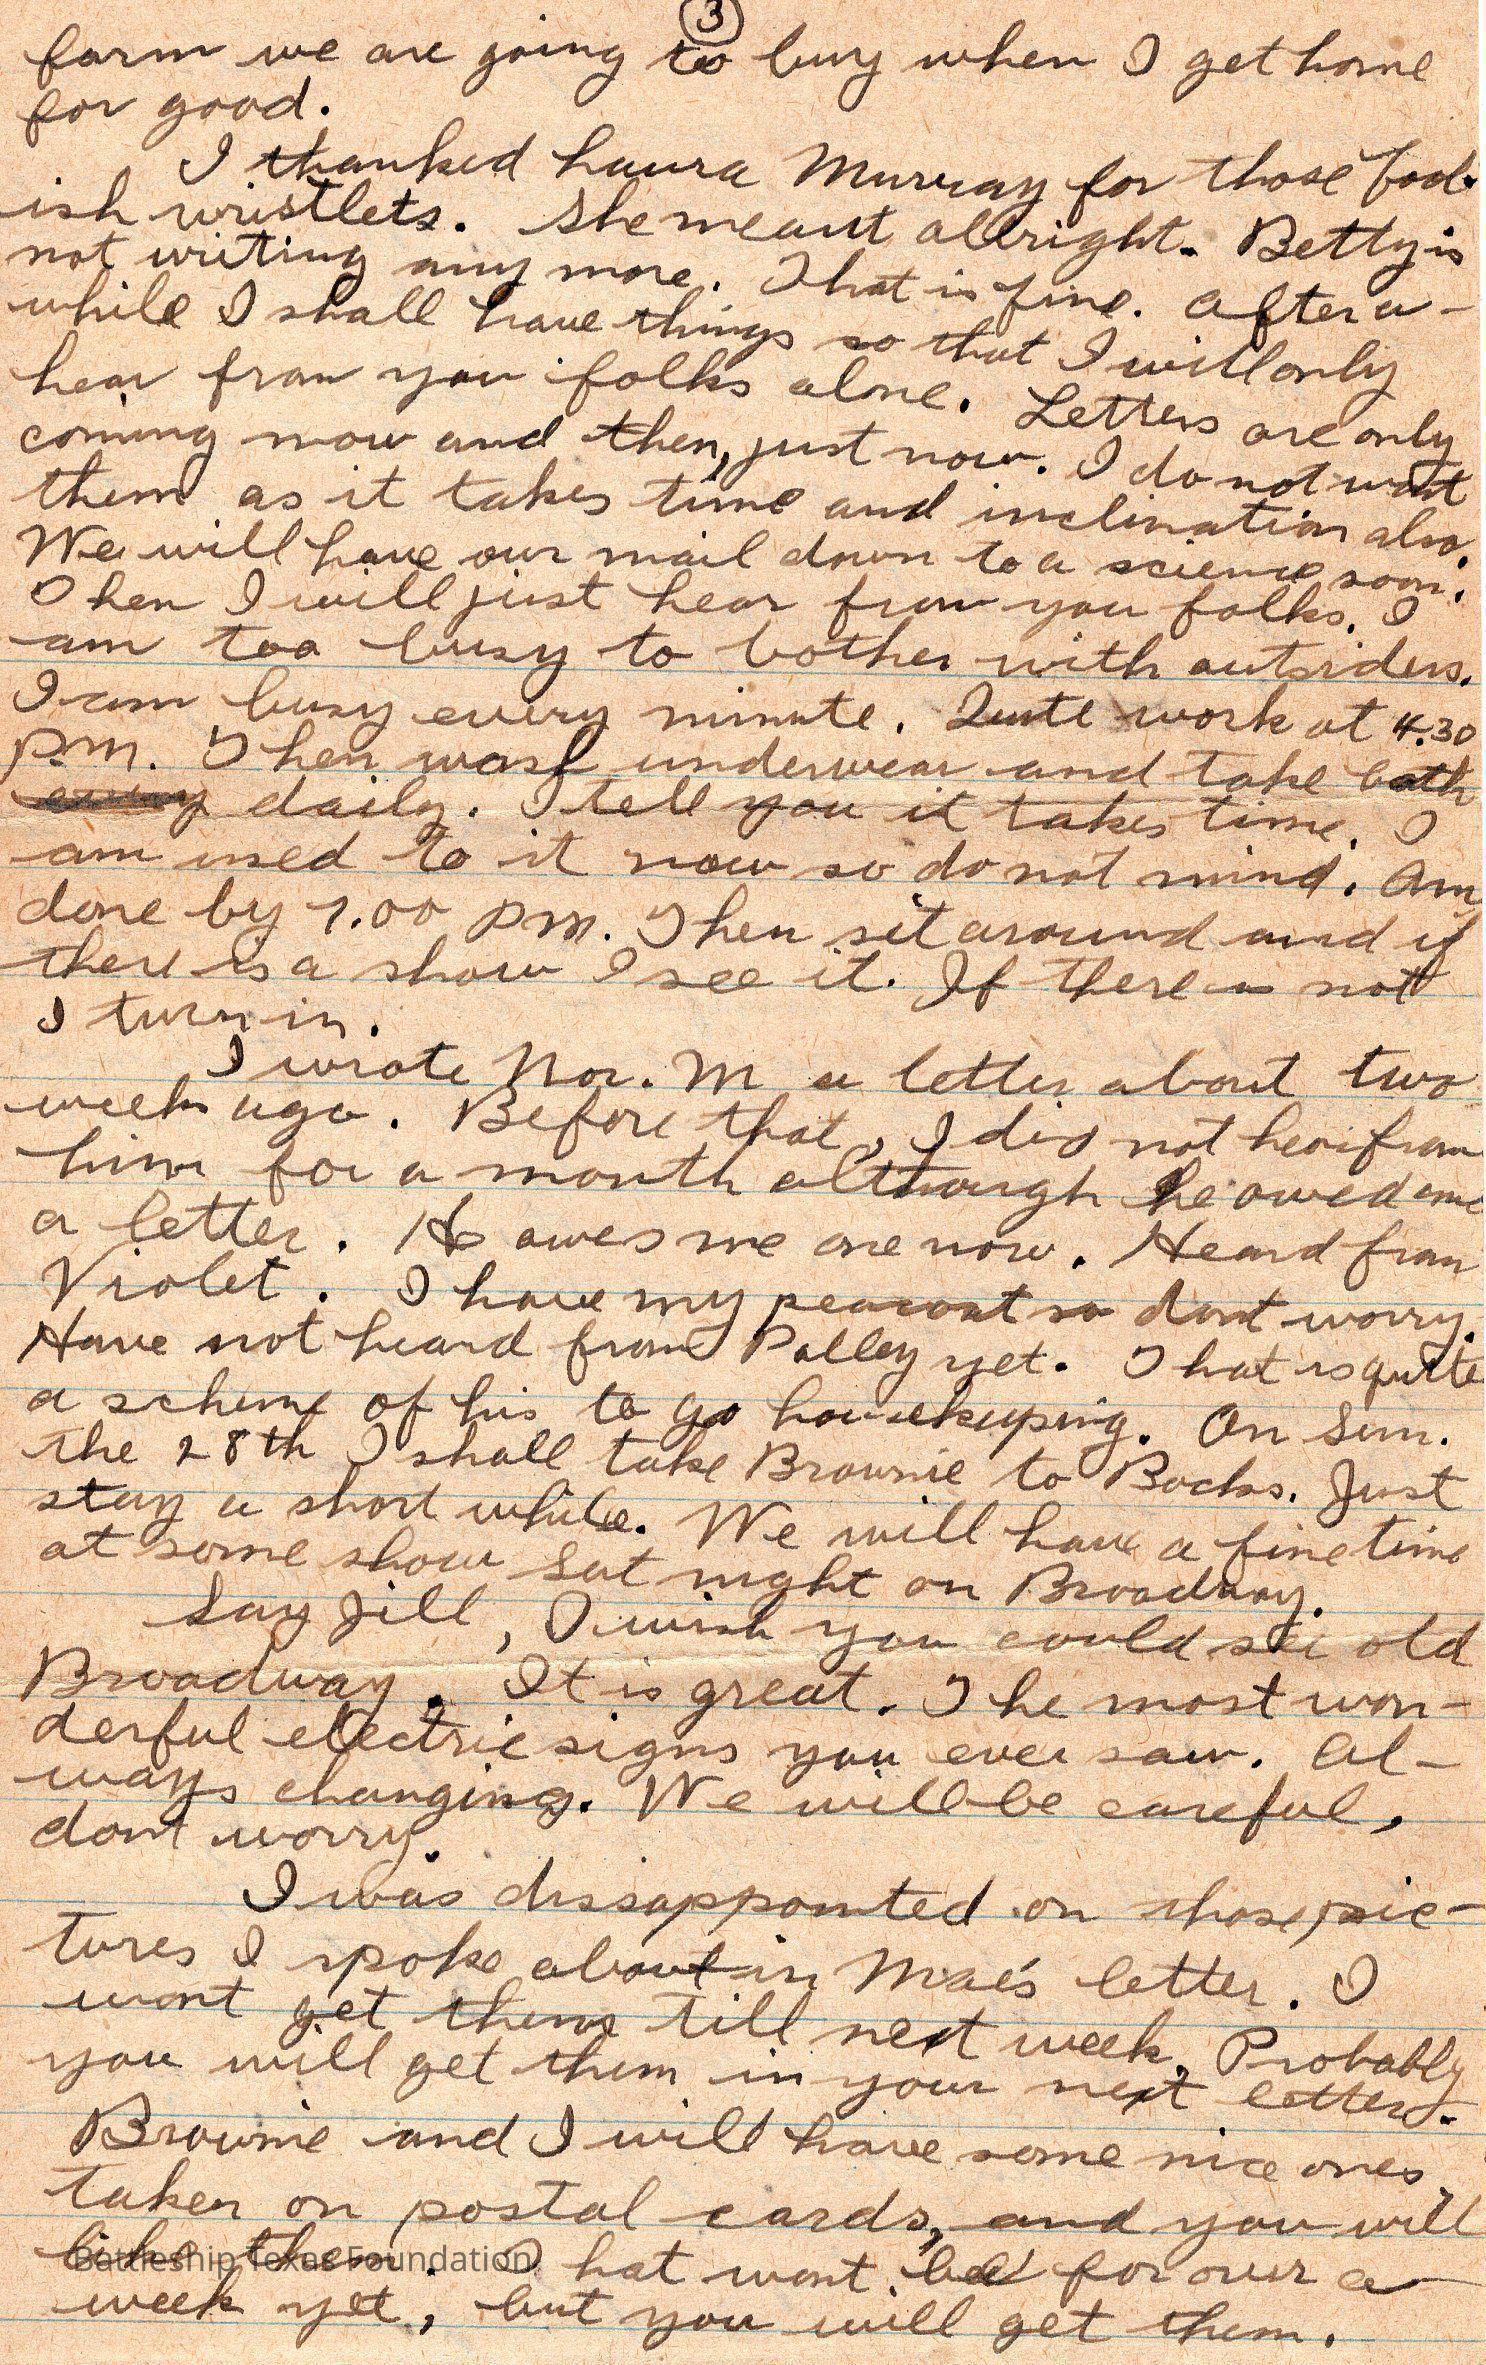 3
farm we are going to buy when I get home
for good.
I thanked Laura Murray for those fool-
ish wristlets. She meant allright. Betty is
not writing any more. That is fine. After a-
while I shall have things so that I will only
hear from you folks alone. Letters are only
coming now and then, just now. I do not want
them as it takes time and inclination also.
We will have our mail down to a science soon.
Then I will just hear from you folks. I
am too busy to bother with outsiders.
I am busy every minute. Quit work at 4.30
P.M. Then wash underwear and take bath
daily. I tell you it takes time. I
am used to it now so do not mind. Am
done by 7.00 P.M. Then sit around and if
there is a show I see it. If there is not
I turn in.
I wrote Nor. M a letter about two
weeks ago. Before that, I did not hear from
him for a month although he owed me
a letter. He owes me one now. Heard from
Violet. I have my peacoat so dont worry.
Have not heard from Polley yet. That is quite
a scheme of his to go housekeeping. On Sun.
the 28th I shall take Brownie to Bocks. Just
stay a short while. We will have a fine time
at some show Sat night on Broadway.
Say Jill, I wish you could see old
Broadway. It is great. The most won-
derful electric signs you ever saw. Al-
ways changing. We will be careful,
dont worry.
I was dissappointed on those pic-
tures I spoke about in Mae's letter. I
wont get them till next week. Probably
you will get them in your next letter.
Brownie and I will have some nice ones
taken on postal cards, and you will
like them. That wont be for over a
week yet, but you will get them.
Battleship Texas Foundation